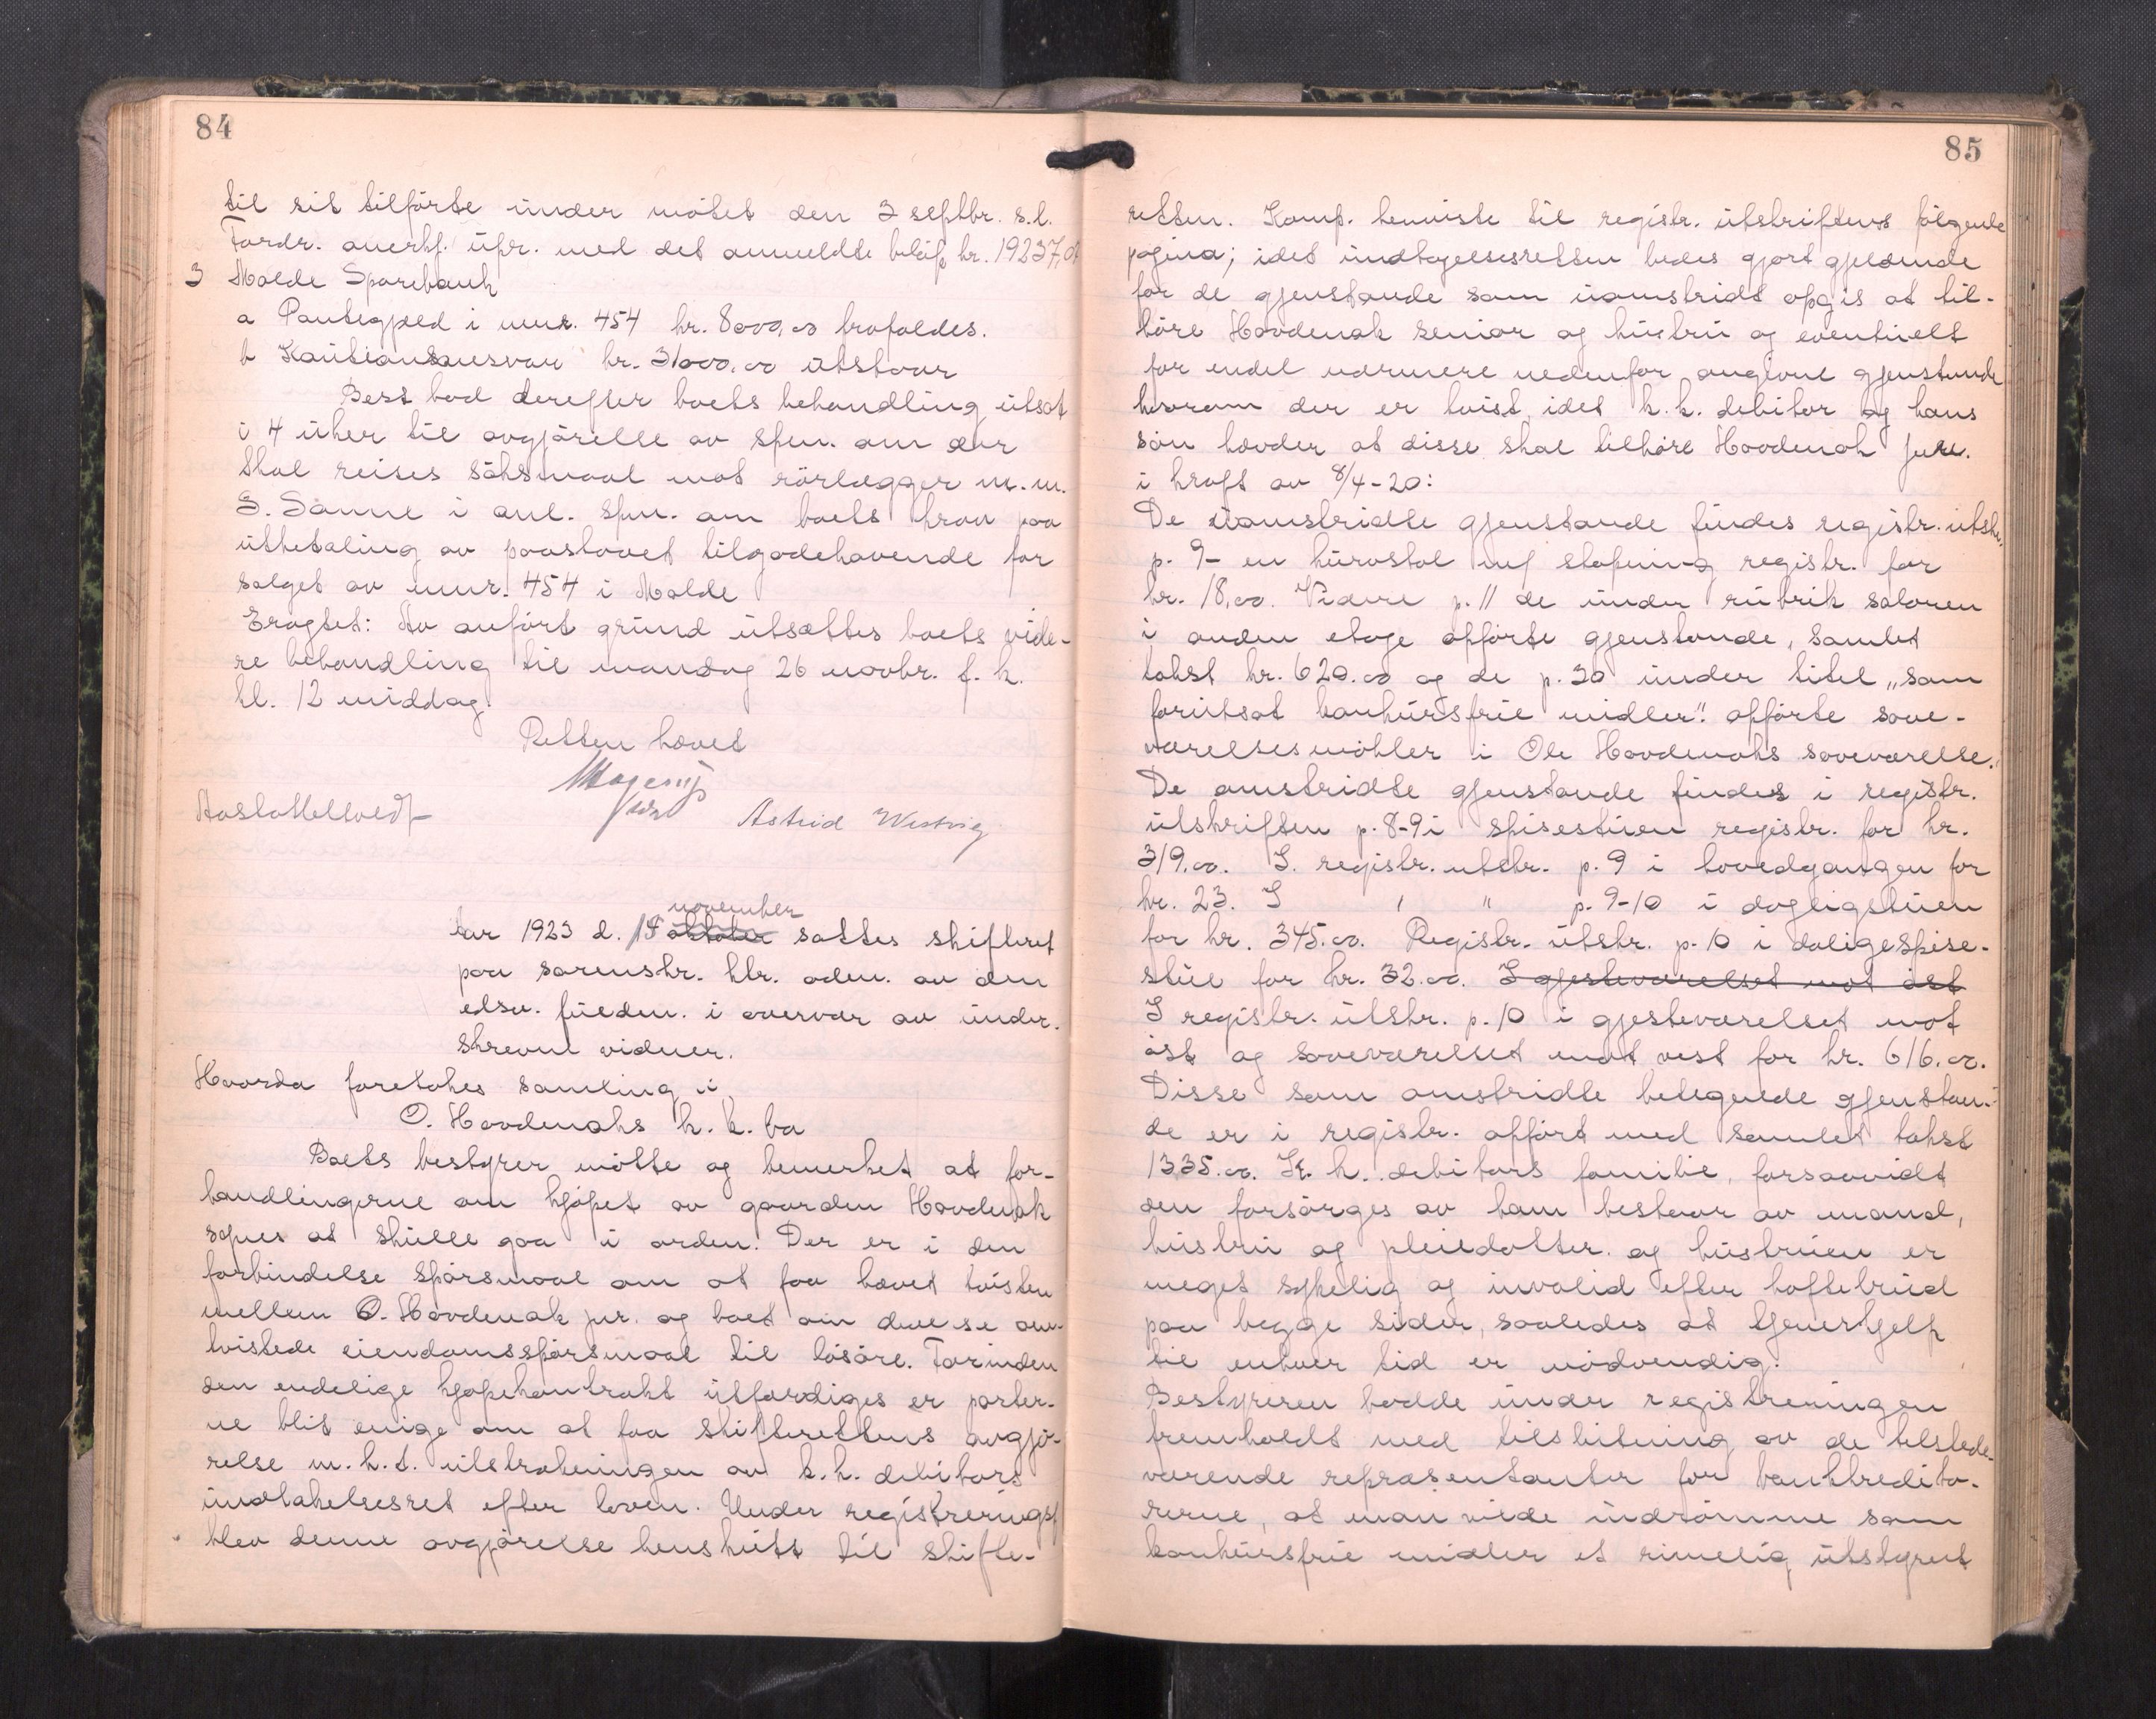 84
til sit tilförte under mötet den 3 septbr. s.l.
Fordr. anerkj. upr. med det anmeldte belöp kr. 19237,
3 Molde Sparebank
a Pantegjæld i mnr. 454 kr. 8000,00 frafaldes.
b Kautionsansvar kr. 31000.00 utstaar
Best bad derefter boets behandling utsat
i 4 uker til avgjörelse av spm. om der
skal reises söksmaal mot rörlægger m.m.
S. Sanne i anl. spm. om boets krav paa
utbetaling av paastaaet tilgodehavende for
salget av mnr. 454 i Molde
Eragtet: Av anfört grund utsættes boets vide-
re behandling til mandag 26 novbr. f. k.
kl. 12 middag.
Retten hævet
Astrid Westvig
november
Aar 1923 d. 15 oktober sattes skifteret
paa sorenskr. ktr. adm. av den
edsv. fuldm. i overvær av under-
skrevne vidner.
Hvorda foretokes samling i
O. Hovdenaks k. k. bo
Boets bestyrer mötte og bemerket at for-
handlingerne om kjöpet av gaarden Hovdenak
synes at skulle gaa i orden. Der er i den
forbindelse spörsmaal om at faa hævet tvisten
mellem O. Hovdenak jnr. og boet om disse om-
tvistede eiendomsspörsmaal til lösöre. Forinden
den endelige kjöpekontrakt utfærdiges er parter-
ne blit enige om at faa skifterettens avgjö-
relse m.h.t. utstrækningen av k.k. debitors
undtakelsesret efter loven. Under registrering
blev denne avgjörelse henskutt til skifte-
85
retten. Komp. henviste til registr. utskriftens følgende
pagina; idet undtagelsesretten bedes gjort gjeldende
for de gjenstande som uomstridt opgis at til-
höre Hovdenak senior og hustru og eventuelt
for endel nærmere nedenfor angivne gjenstande
hvorom der er tvist, idet k.k. debitor og hans
sön hævder at disse skal tilhöre Hovdenak junr.
i kraft av 8/4-20:
De uomstridte gjenstande findes registr. utskr.
p. 9- en kurvstol m/ stopning registr. for
kr. 18,00. Videre p. 11 de under rubrik salonen
i anden etage opförte gjenstande, samlet
takst kr. 620.00 og de p. 30 under titel "som
forutsat konkursfrie midler". opförte sove-
værelsesmöbler i Ole Hovdenaks soveværelse.
De omstridte gjenstande findes i registr.
utskriften p. 8-9 i spisestuen registr. for kr.
319.00. I. registr. utskr. p. 9 i hovedgangen for
kr. 23. I " " p. 9-10 i dagligstuen
for kr. 345.00. Registr. utskr. p. 10 i daligespise-
stue for kr. 32.00. I gjesteværelset mot öst
I registr. utskr. p. 10 i gjesteværelset mot
öst og soveværelset mot vest for kr. 616.00.
Disse som omstridte betegnede gjenstan-
de er i registr. opfört med samlet takst
1335.00. K. k. debitors familie, forsaavidt
den forsörges av ham bestaar av mand,
hustru og pleiedatter. og hustruen er
meget sykelig og invalid efter hoftebrud
paa begge sider, saaledes at tjenerhjelp
til enhver tid er nödvendig.
Bestyreren hadde under registreringen
fremholdt med tilslutning av de tilstede-
værende repræsentanter for bankkredito-
rerne, at man vilde indrömme som
konkursfrie midler et rimelig utstyret